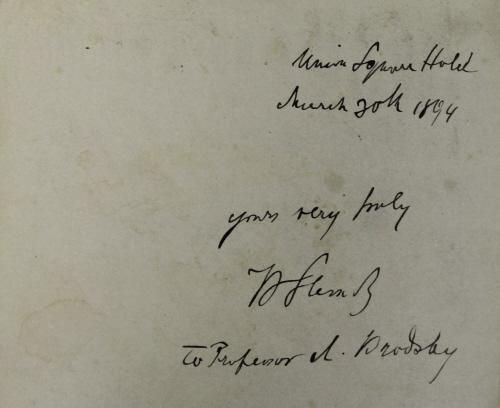 Union Square Hotel
March 30th 1894
yours very truly
To Professor A. Brodsky